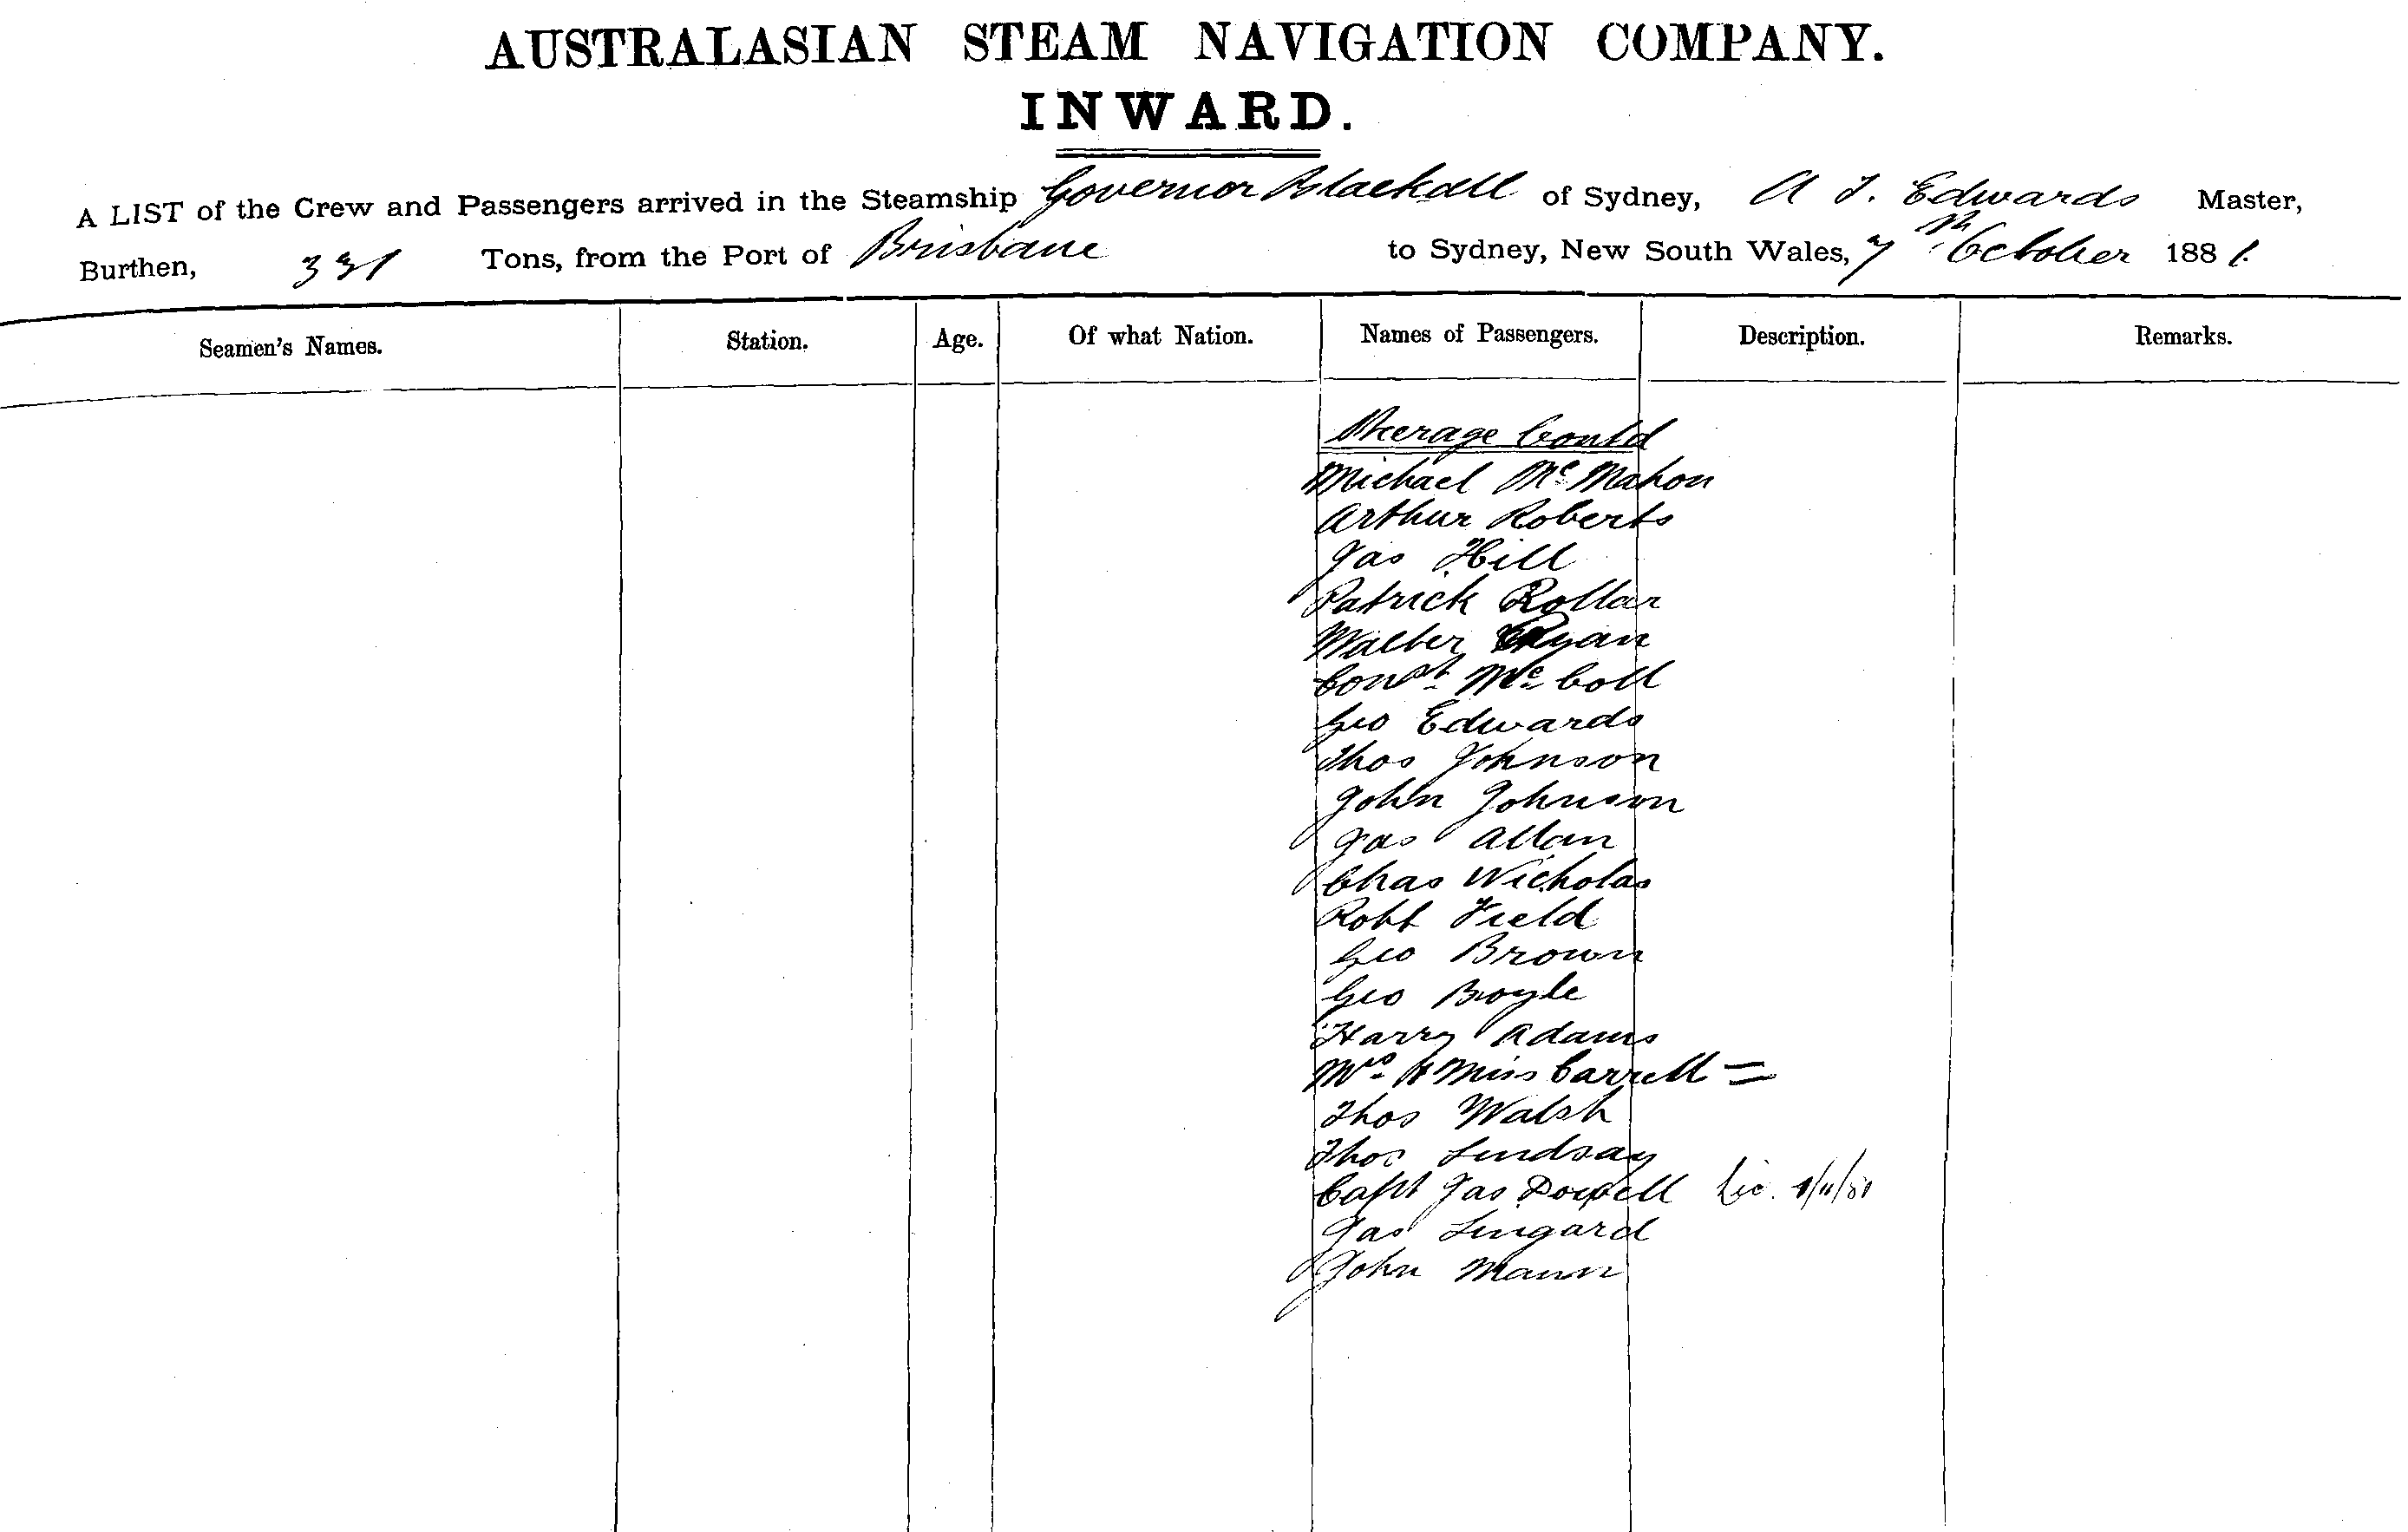 AUSTRALASIAN STEAM NAVIGATION COMPANY.
INWARD.
A LIST of the Crew and Passengers arrived in the Steamship Governor Blackall of Sydney, A J. Edwards Master,
Burthen, 331 Tons, from the Port of Brisbane to Sydney, New South Wales, 7th October 1881.
Seamen's Names. Station. Age. Of what Nation. Names of Passengers. Description. Remarks.
Steerage Contd
Michael McMahon
Arthur Roberts
Jas Hill
Patrick Rollar
Walter Ryan
Const. McColl
Geo Edwards
Thos Johnson
John Johnson
Jas Allan
Chas Nicholas
Robt Field
Geo Brown
Geo Boyle
Harry Adams
Mrs & Miss Carrell =
Thos Walsh
Thos Lindsay
Capt Jas Powell
Jas Lingard
John Mann